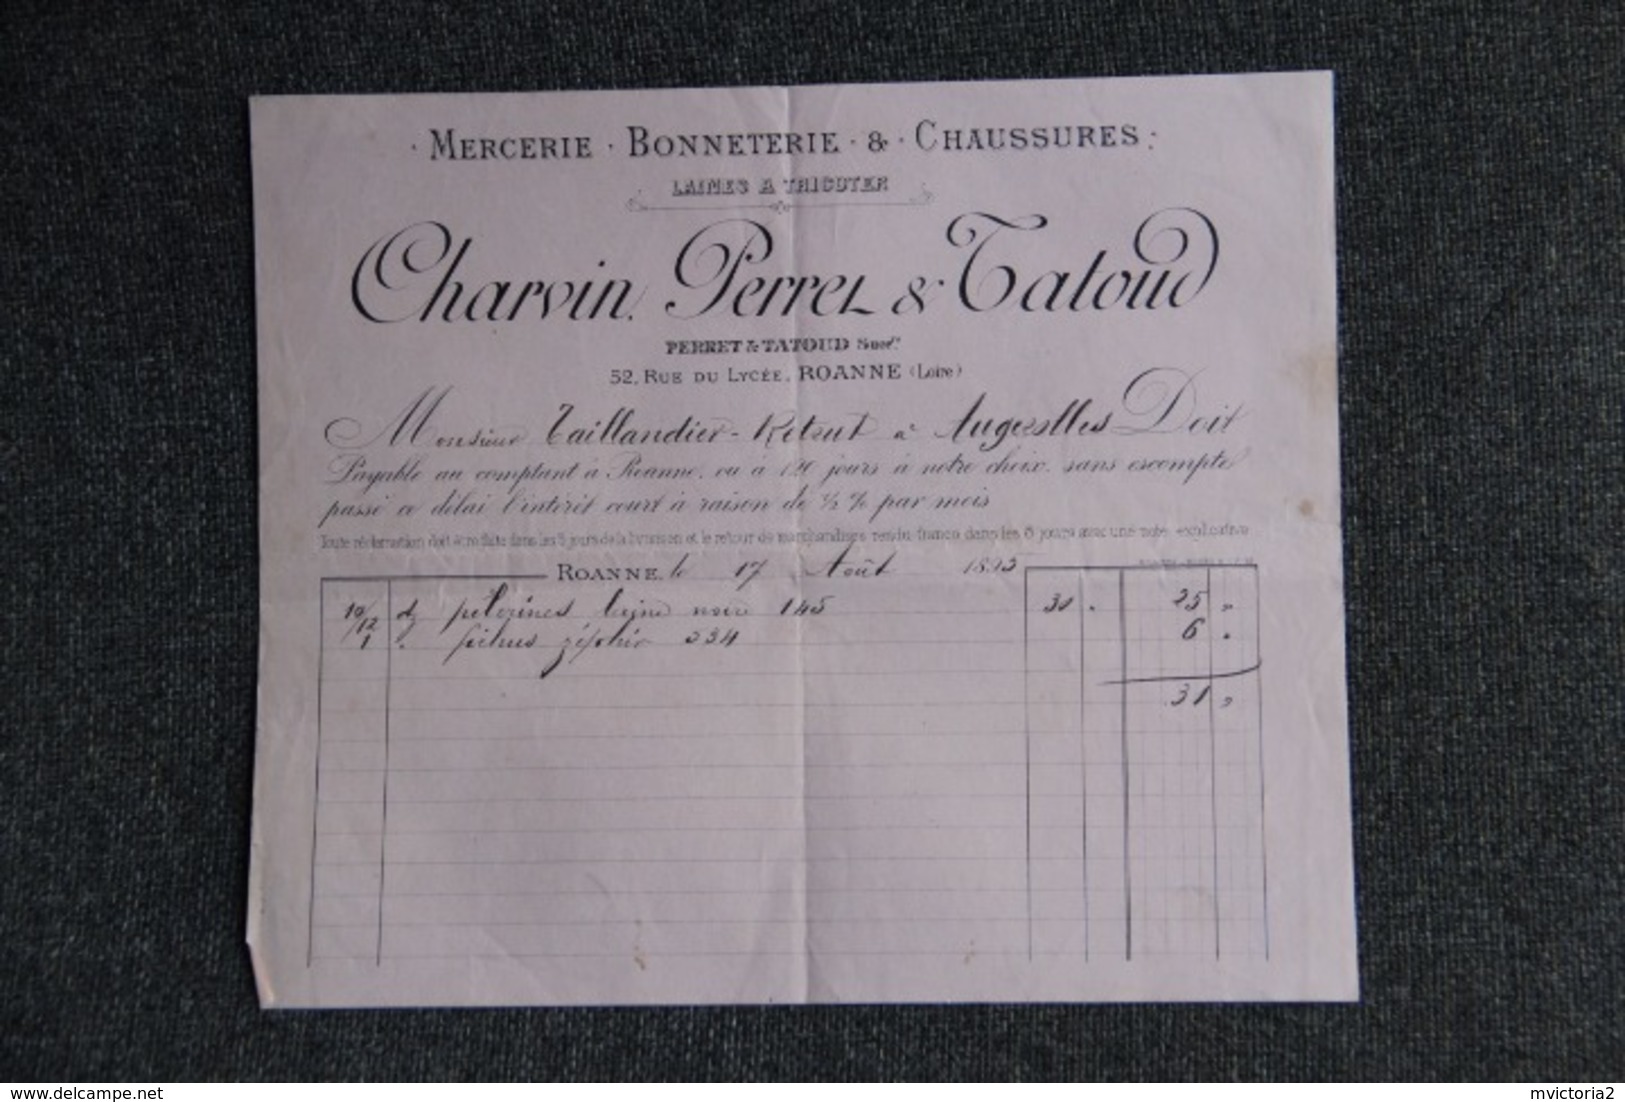 · MERCERIE · BONNETERIE · & · CHAUSSURES ·
LAINES A TRICOTER
Charvin, Perret & Tatoud
PERRET & TATOUD Succrs
52, RUE DU LYCÉE, ROANNE (Loire)
Monsieur Taillandier - à Augerolles Doit
Payable au comptant à Roanne, ou à 120 jours à notre choix, sans escompte
passé ce délai l'intérêt court à raison de ½ % par mois
Toute réclamation doit être faite dans les 8 jours de la livraison et le retour de marchandises rendu franco dans les 8 jours avec une note explicative
ROANNE, le 17 Août 1895
10/12 dz pelerines laine noire 145 30 . 25 "
1 " fichus zéphir 334 6 "
31 "
delcampe.net
mvictoria2